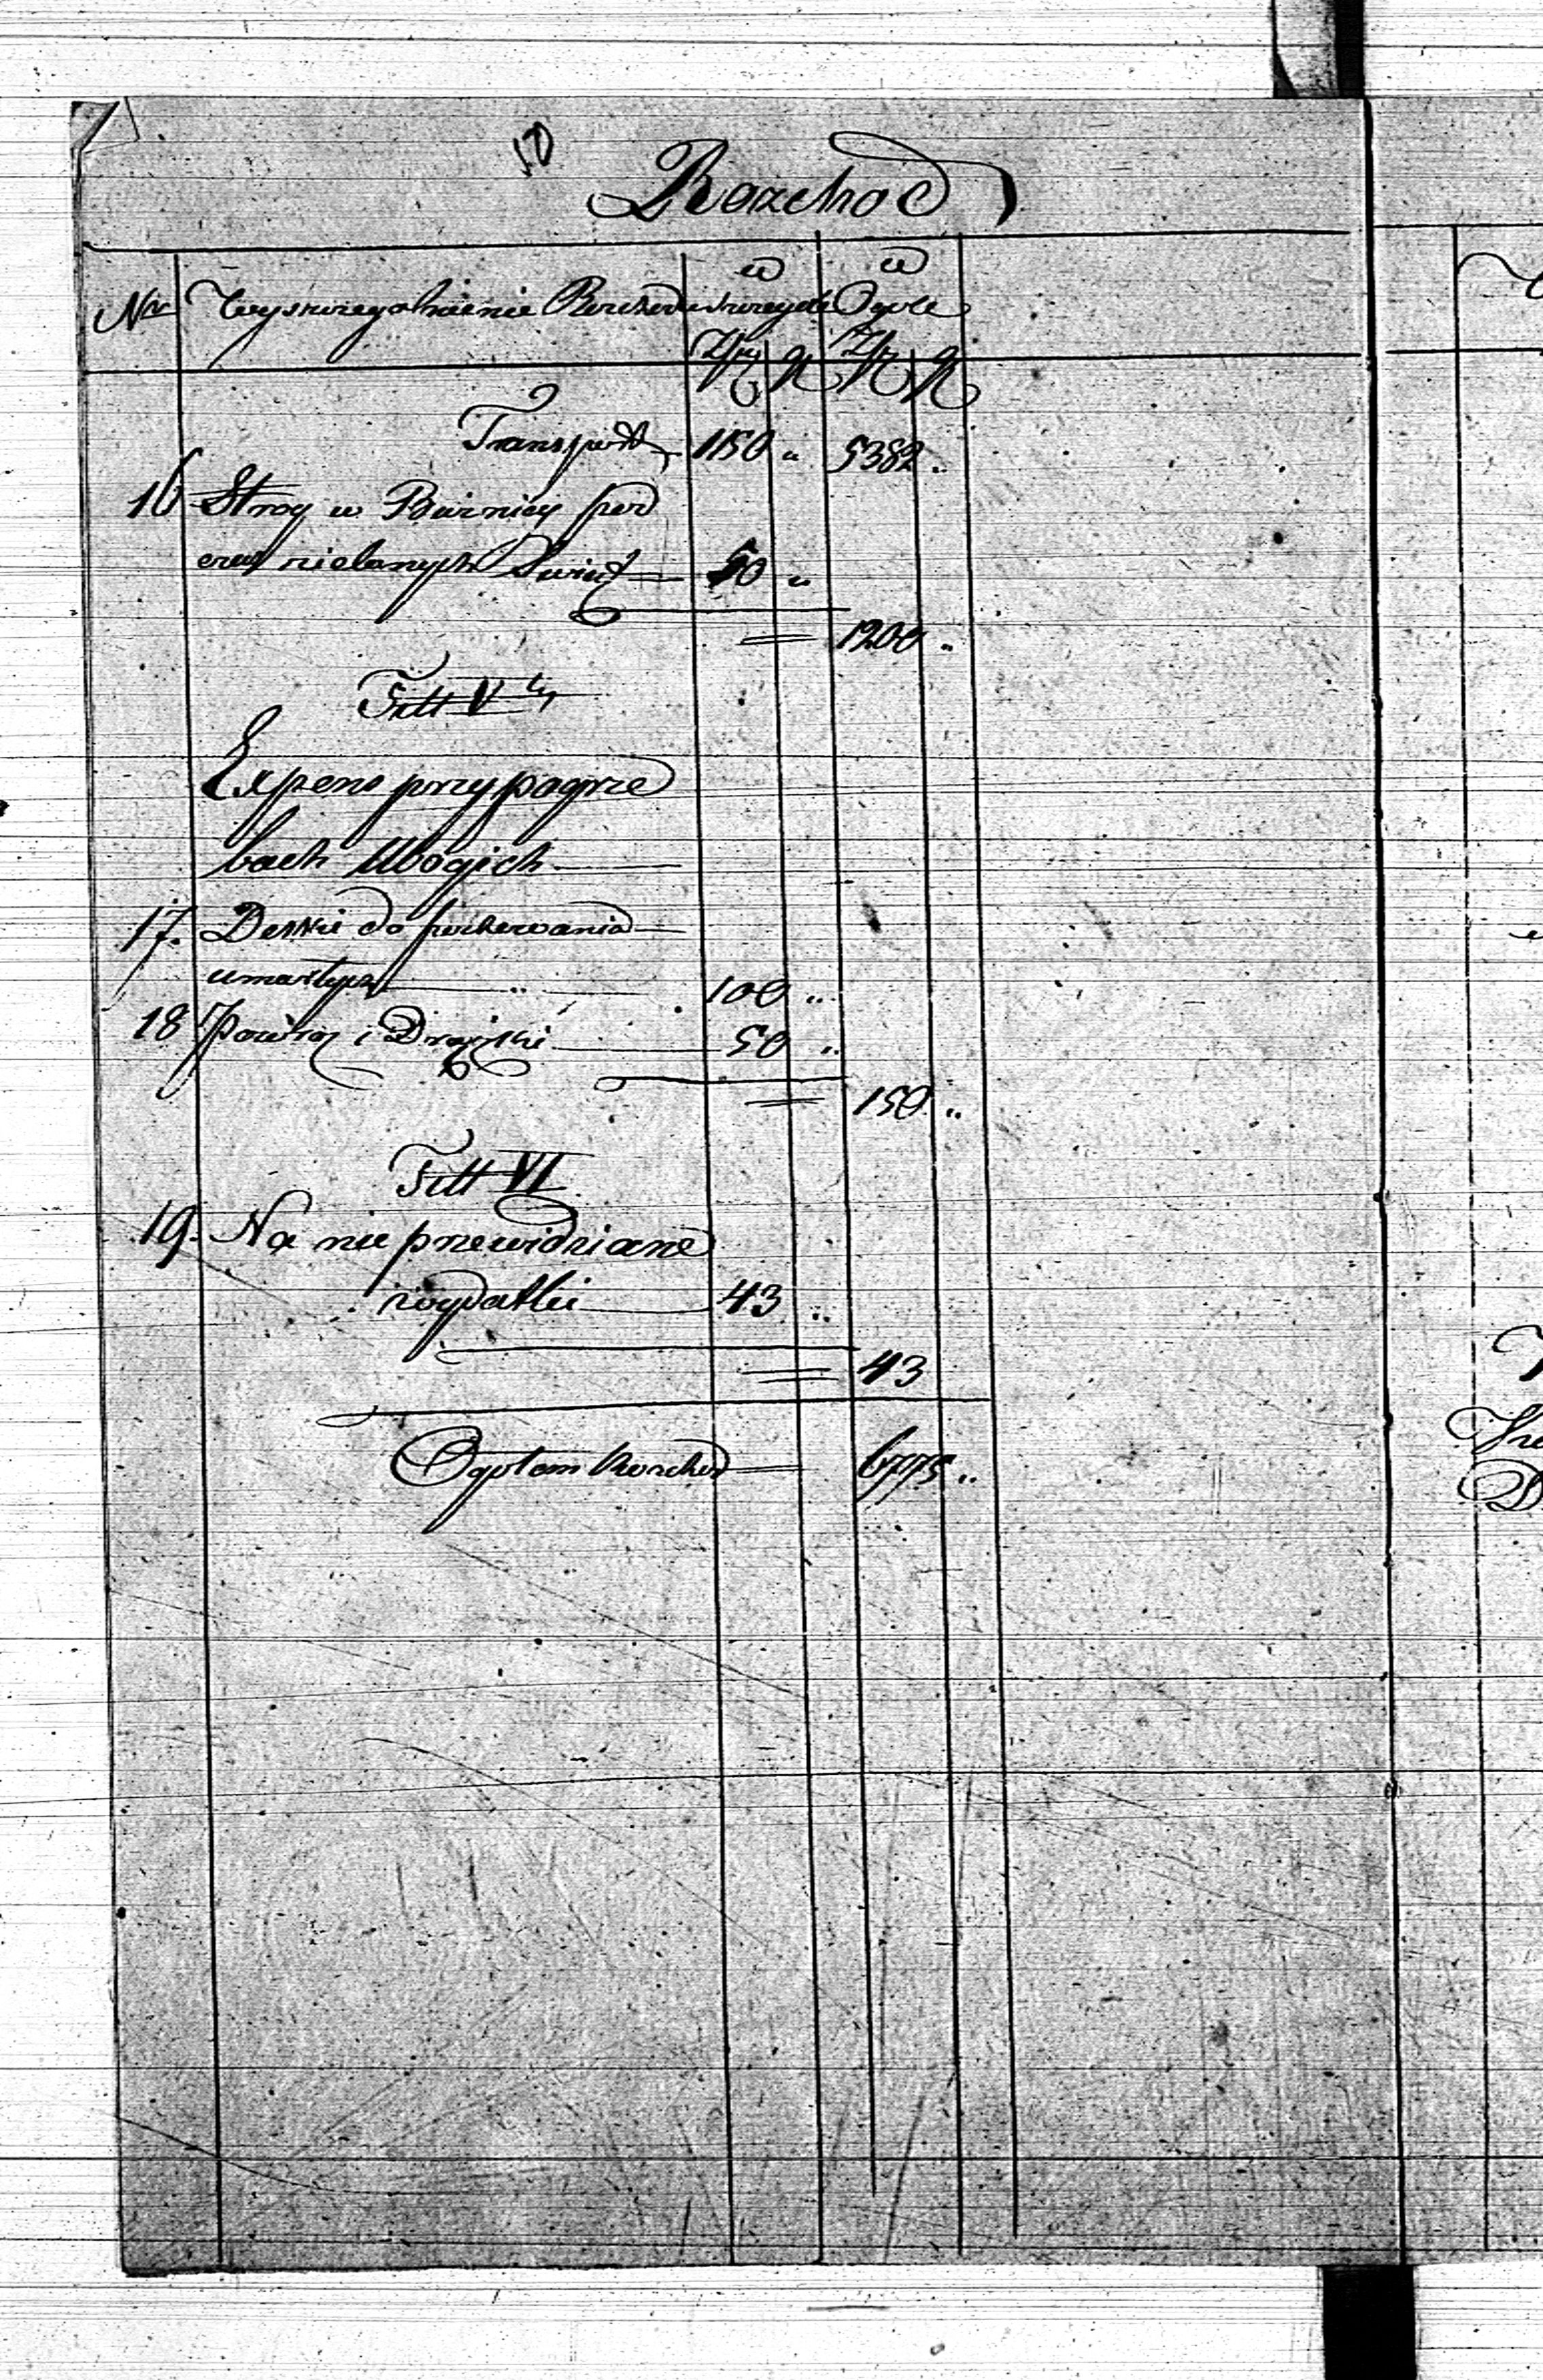 10
Rozchod
Nr Wyszczegolnienie Rozchodu w szczegole w Ogole
Złp gr Złp gr
Transport 1150 " 5382 "
16 Stroz w Boznicy pod
czas zielonych Swiąt 50 "
1200 "
Titt V
Expens przy pogrze
bach Ubogich
17. Deski do pochowania
umarłych " 100 "
18 Powroz i Drążki 50 "
150 "
Titt VI
19. Na nie przewidziane
wydatki 43 "
43
Ogołem Rozchod 6775 "